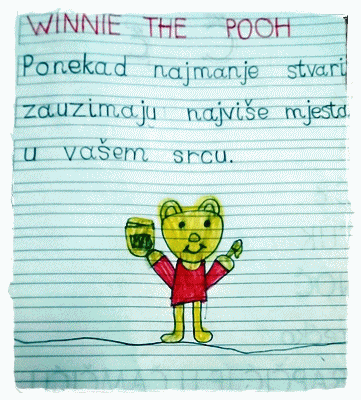 WINNIE THE POOH
Ponekad najmanje stvari
zauzimaju najviše mjesta
u vašem srcu.